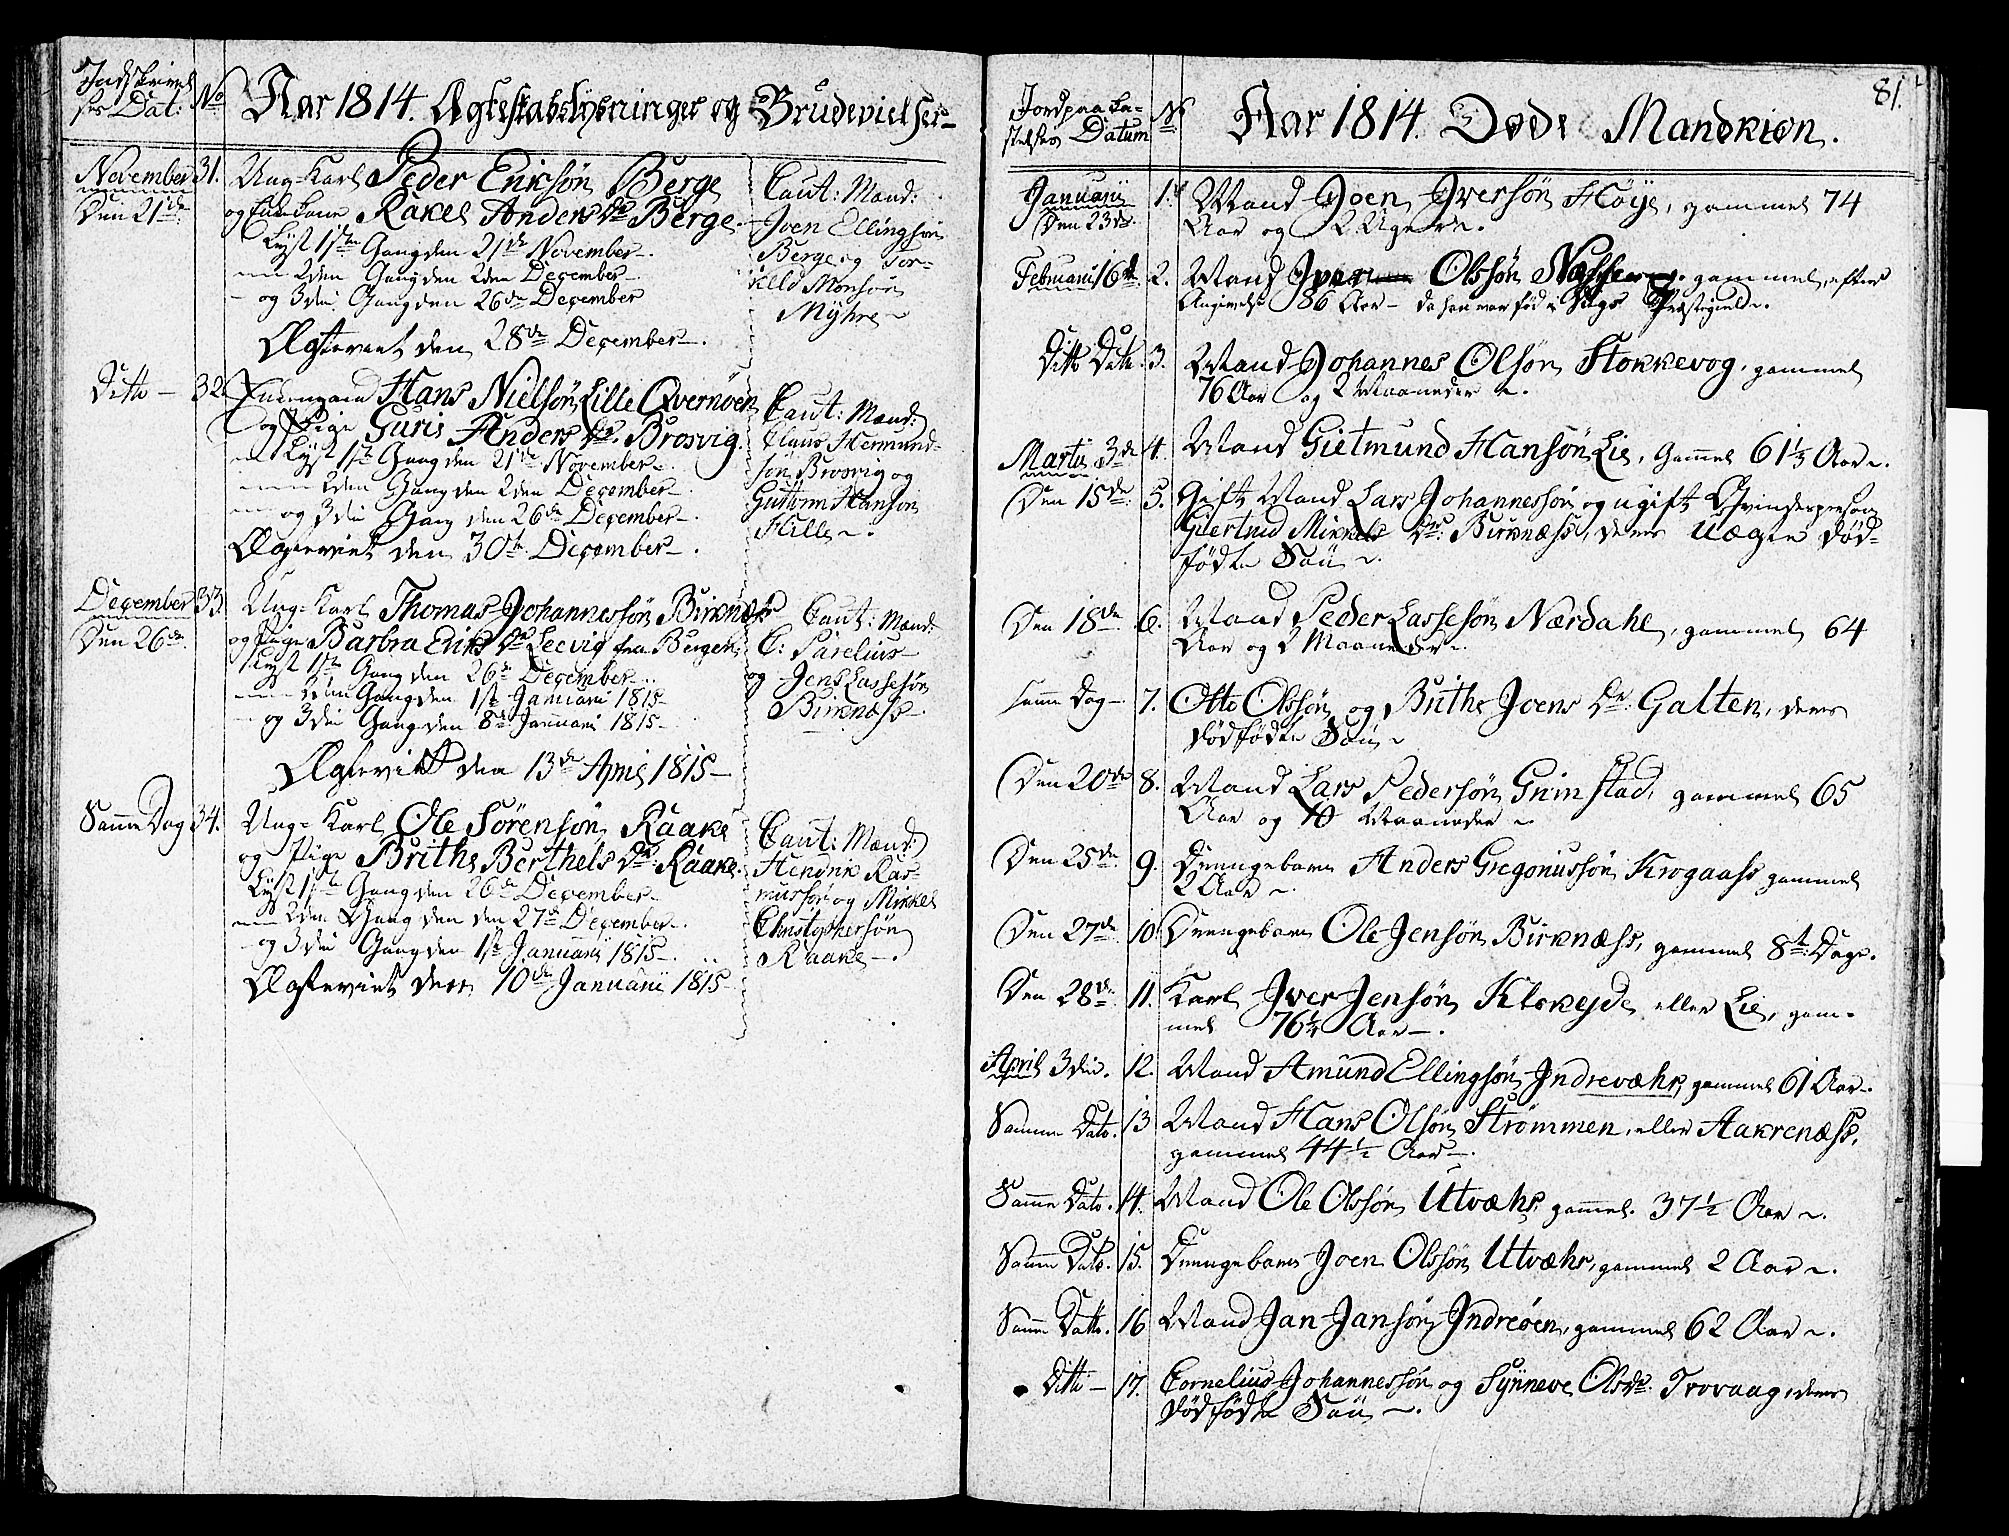 Indskrivel
ses Dat: No Aar 1814. Ægteskabslysninger og Brudevielser
November 31. Ung-Karl Peder Eriksøn Berge
Den 21de og Enkekone Rakel Anders Dr Berge.
Lyst 1ste Gang den 21de November
2den Gang den 2den December
og 3die Gang den 26de December
Ægteviet den 28de December
Caut: Mænd:
Joen Ellingsøn
Berge og Tor-
kild Monsøn
Myhre
Ditto 32. Enkemand Hans Nielsøn Lille Qvernøen
og Pige Guri Anders Dr. Brosvig.
Lyst 1ste Gang den 21de November
2den Gang den 2den December
og 3die Gang den 26de December
Ægteviet den 30te December
Caut: Mænd:
Claus Hermund-
søn Brosvig og
Guttorm Hansøn
Hille
December 33. Ung-Karl Thomas Johannessøn Birknæs
Den 26de og Pige Barbra Eriks Dr Leevig fra Bergen,
Lyst 1ste Gang den 26de December
2den Gang den 1ste Januari 1815
og 3die Gang den 8de Januari 1815
Ægteviet den 13de April 1815
Caut: Mænd:
C: Parelius
og Jens Lassesøn
Birknæss
Samme Dag 34. Ung-Karl Ole Sörensøn Raake
og Pige Brithe Berthels Dr. Raake.
Lyst 1ste Gang den 26de December
2den Gang den den 27de December
og 3die Gang den 1ste Januarii 1815
Ægteviet den 10de Januarii 1815
Caut: Mænd:
Hendrik Ras-
mussøn og Mikkel
Christophersøn
Raake
81.
Jordpaaka-
stelses Datum No Aar 1814. Døde Mandkiøn.
Januarii 1. Mand Joen Iversøn Høye, gammel 74
Den 23de Aar og 2 Uger
Februarii 16de 2. Mand Iver Olssøn gammel, efter
Angivelse 86 Aar - da han var fød i Præstegield
Ditto Dato 3. Mand Johannes Olsøn Stokkevog, gammel
76 Aar og 2 Maaneder
Martii 3de 4. Mand Gietmund Hansøn Lie, Gammel 61 1/3 Aar
Den 15de 5. Gift Mand Lars Johannessøn og ugift Qvindesperson
Giertrud Mikkels Dr: Birknæss, deres uægte død-
fødte Søn
Den 18de 6. Mand Peder Lassesøn Nærdahl, gammel 64
Aar og 2 Maaneder
samme Dag 7. Otto Olssøn og Brithe Joens Dr: Galten, deres
dødfødte Søn
Den 20de 8. Mand Lars Pedersøn Grimstad, gammel 65
Aar og 10 Maaneder
Den 25de 9. Drengebarn Anders Gregoriussøn Krogaass gammel
2 Aar
Den 27de 10 Drengebarn Ole Jensøn Birknæss, gammel 8te Dage.
Den 28de 11. Karl Iver Jensøn Kleivejde eller Lie, gam-
mel 76 1/4 Aar
April 3die. 12. Mand Amund Ellingsøn Indrevæhr, gammel 61 Aar
Samme Dato. 13 Mand Hans Olsøn Strömmen, eller Aakrenæss,
gammel 44 1/2 Aar
Samme Dato. 14. Mand Ole Olssøn Utvæhr, gammel. 37 1/2 Aar
Samme Dato. 15. Drengebarn Joen Olssøn Utvæhr, gammel 2 Aar
Samme Datto. 16 Mand Jan Jansøn Indreöen, gammel 62 Aar
Ditto 17. Cornelius Johannessøn og Synneve Olsdr. Trovaag, deres
dødfødte Søn